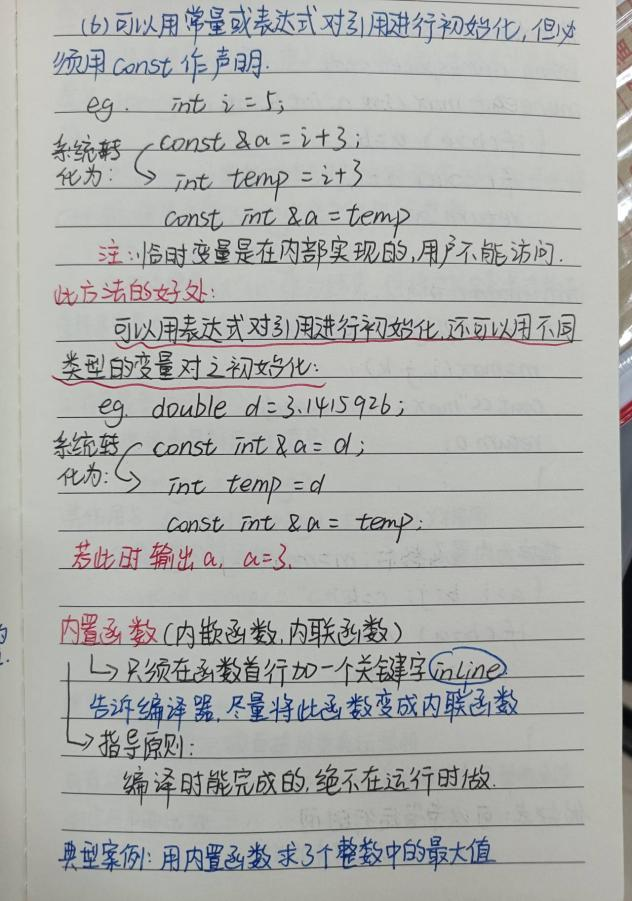 (6)可以用常量或表达式对引用进行初始化,但必
须用const作声明.
eg. int i=5;
系统转化为: const &a=i+3;
int temp=i+3
const int &a=temp
注:临时变量是在内部实现的,用户不能访问.
此方法的好处:
可以用表达式对引用进行初始化,还可以用不同
类型的变量对之初始化:
eg. double d=3.1415926;
系统转化为: const int &a=d;
int temp=d
const int &a=temp;
若此时输出a, a=3.
内置函数(内嵌函数,内联函数)
只须在函数首行加一个关键字inline
告诉编译器,尽量将此函数变成内联函数
指导原则:
编译时能完成的,绝不在运行时做.
典型案例:用内置函数求3个整数中的最大值